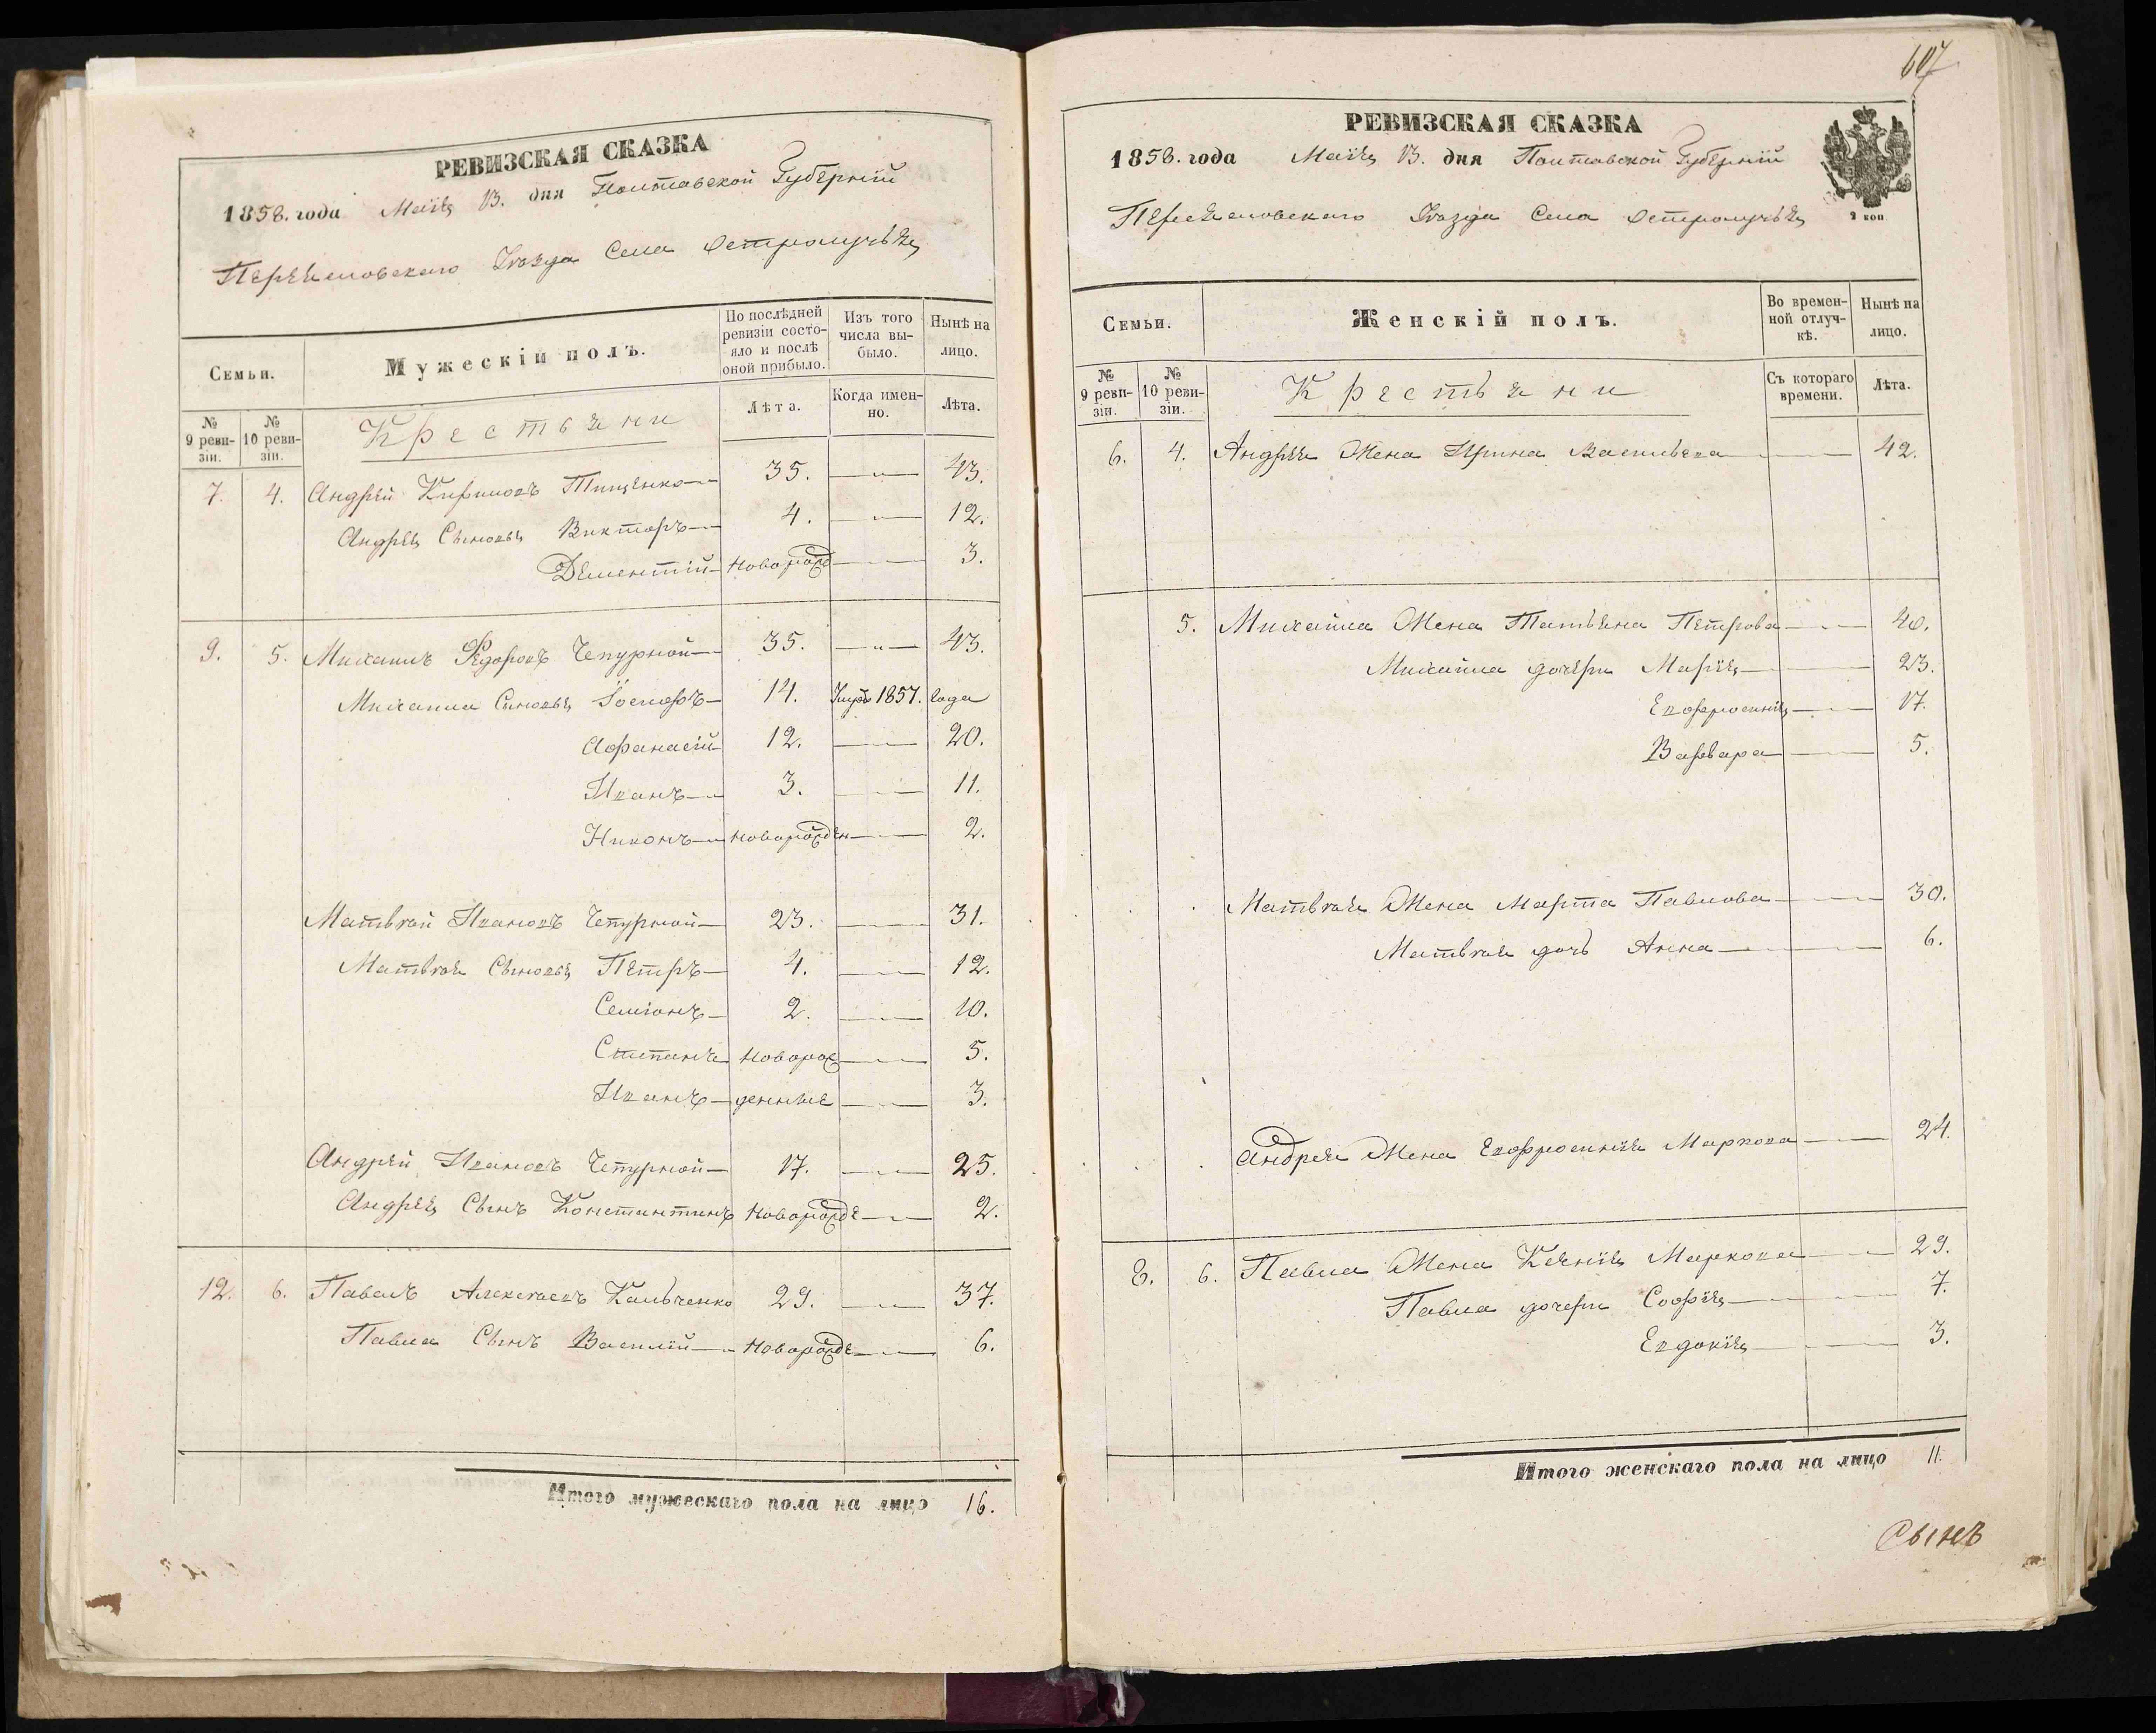 РЕВИЗСКАЯ СКАЗКА
1858. года Маія 13. дня Полтавской Губерніи
Переяславскаго Уѣзда Села Остролучья
Семьи.
Мужескій полъ.
По послѣдней ревизіи состояло и послѣ оной прибыло.
Изъ того числа выбыло.
Нынѣ на лицо.
№ 9 ревизіи.
№ 10 ревизіи.
Крестьяни
Лѣта.
Когда именно.
Лѣта.
7. 4. Андрей Кириловъ Тищенко 35. — 43.
Андрея Сыновья Викторъ 4. — 12.
Дементій Новорожд — 3.
9. 5. Михаилъ Федоровъ Чепурной 35. — 43.
Михаила Сыновья Іосифъ 14. 1857. года
Афанасій 12. — 20.
Иванъ 3. — 11.
Никонъ новорожден — 2.
Матвѣй Ивановъ Чепурной 23. — 31.
Матвѣя Сыновья Петръ 4. — 12.
Семіонъ 2. — 10.
Степанъ Новорож — 5.
Иванъ денные — 3.
Андрей Ивановъ Чепурной 17. — 25.
Андрея Сынъ Константинъ Новорожде — 2.
12. 6. Павелъ Алексѣевъ Кальченко 29. — 37.
Павла Сынъ Василій Новорожде — 6.
Итого мужескаго пола на лицо 16.
607
РЕВИЗСКАЯ СКАЗКА
1858. года Маія 13. дня Полтавской Губерніи
Переяславскаго Уѣзда Села Остролучья
2 коп
Семьи.
Женскій полъ.
Во временной отлучкѣ.
Нынѣ на лицо.
№ 9 ревизіи.
№ 10 ревизіи.
Крестьяни
Съ котораго времени.
Лѣта.
6. 4. Андрея Жена Ирина Васильева — 42.
5. Михайла Жена Татьяна Петрова — 40.
Михайла дочери Марія — 23.
Евфросинія — 17.
Варвара — 5.
Матвѣя Жена Марта Павлова — 30.
Матвѣя дочь Анна — 6.
Андрея Жена Евфросинія Маркова — 24.
8. 6. Павла Жена Ксенія Маркова — 29.
Павла дочери Софія — 7.
Евдокія — 3.
Итого женскаго пола на лицо 11.
Сынъ